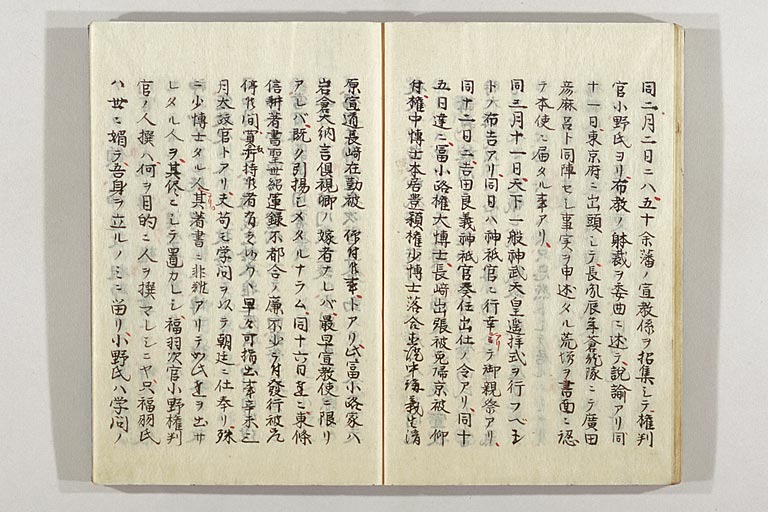 同二月二日ニハ五十余藩ノ宣教係ヲ招集シテ権判
官小野氏ヨリ布教ノ躰裁ヲ委曲ニ述ラ説諭アリ同
十一日東京府ニ出頭シテ長 辰年蒼龍隊ニテ廣田
彦麻呂ト同陣セシ事実ヲ申述タル荒坊ヲ書面ニ認
テ本使ニ届タル事アリ
同三月十一日天下一般神武天皇遥拝式ヲ行フベキ
トノ布告アリ同日ハ神祇官ニ行幸 テ御親祭アリ
同十二日ニ吉田良義神祇官奏任出仕ノ令アリ同十
五日達ニ冨小路権大博士長﨑出張被免帰京被 仰
付権中博士本居豊穎権少博士落合直澄中講義 清
原宣通長﨑在勤被 仰付候事トアリ 冨小路家ハ
岩倉大納言倶視卿ノ嫁者ナレバ最早宣教使ニ限リ
アレバ既ク引揚シメタルナラム同十六日達ニ東條
信耕著書聖世紹運録不都合ノ廉不少ラ付発行被差
停候間 持候者 早々可指出事辛未三
月太政官トアリ夫苟モ学問ヲ以テ朝廷ニ仕奉リ殊
ニ少博士タル人其著書ニ非 アリテ 達ヲ出サ
レタル人ヲ其侭ニシテ置カレシ福羽次官小野権判
官ノ人撰ハ何ヲ目的ニ人ヲ撰マレシニヤ只福羽氏
ハ世ニ媚テ吾身ヲ立ルノミニ留リ小野氏ハ学問ノ